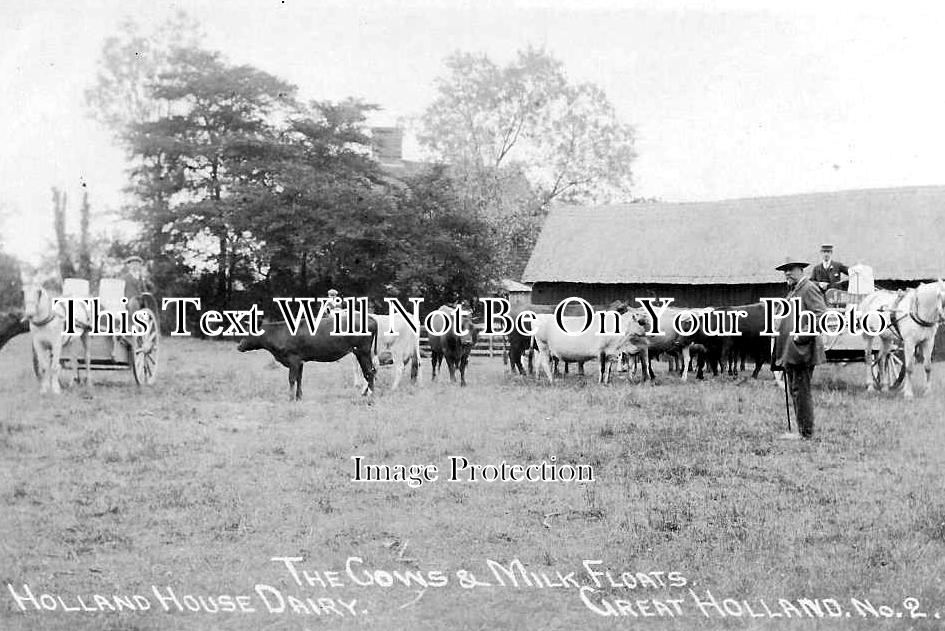 This Text Will Not Be On Your Photo
Image Protection
The Cows & Milk Floats.
Holland House Dairy.
Great Holland. No. 2.